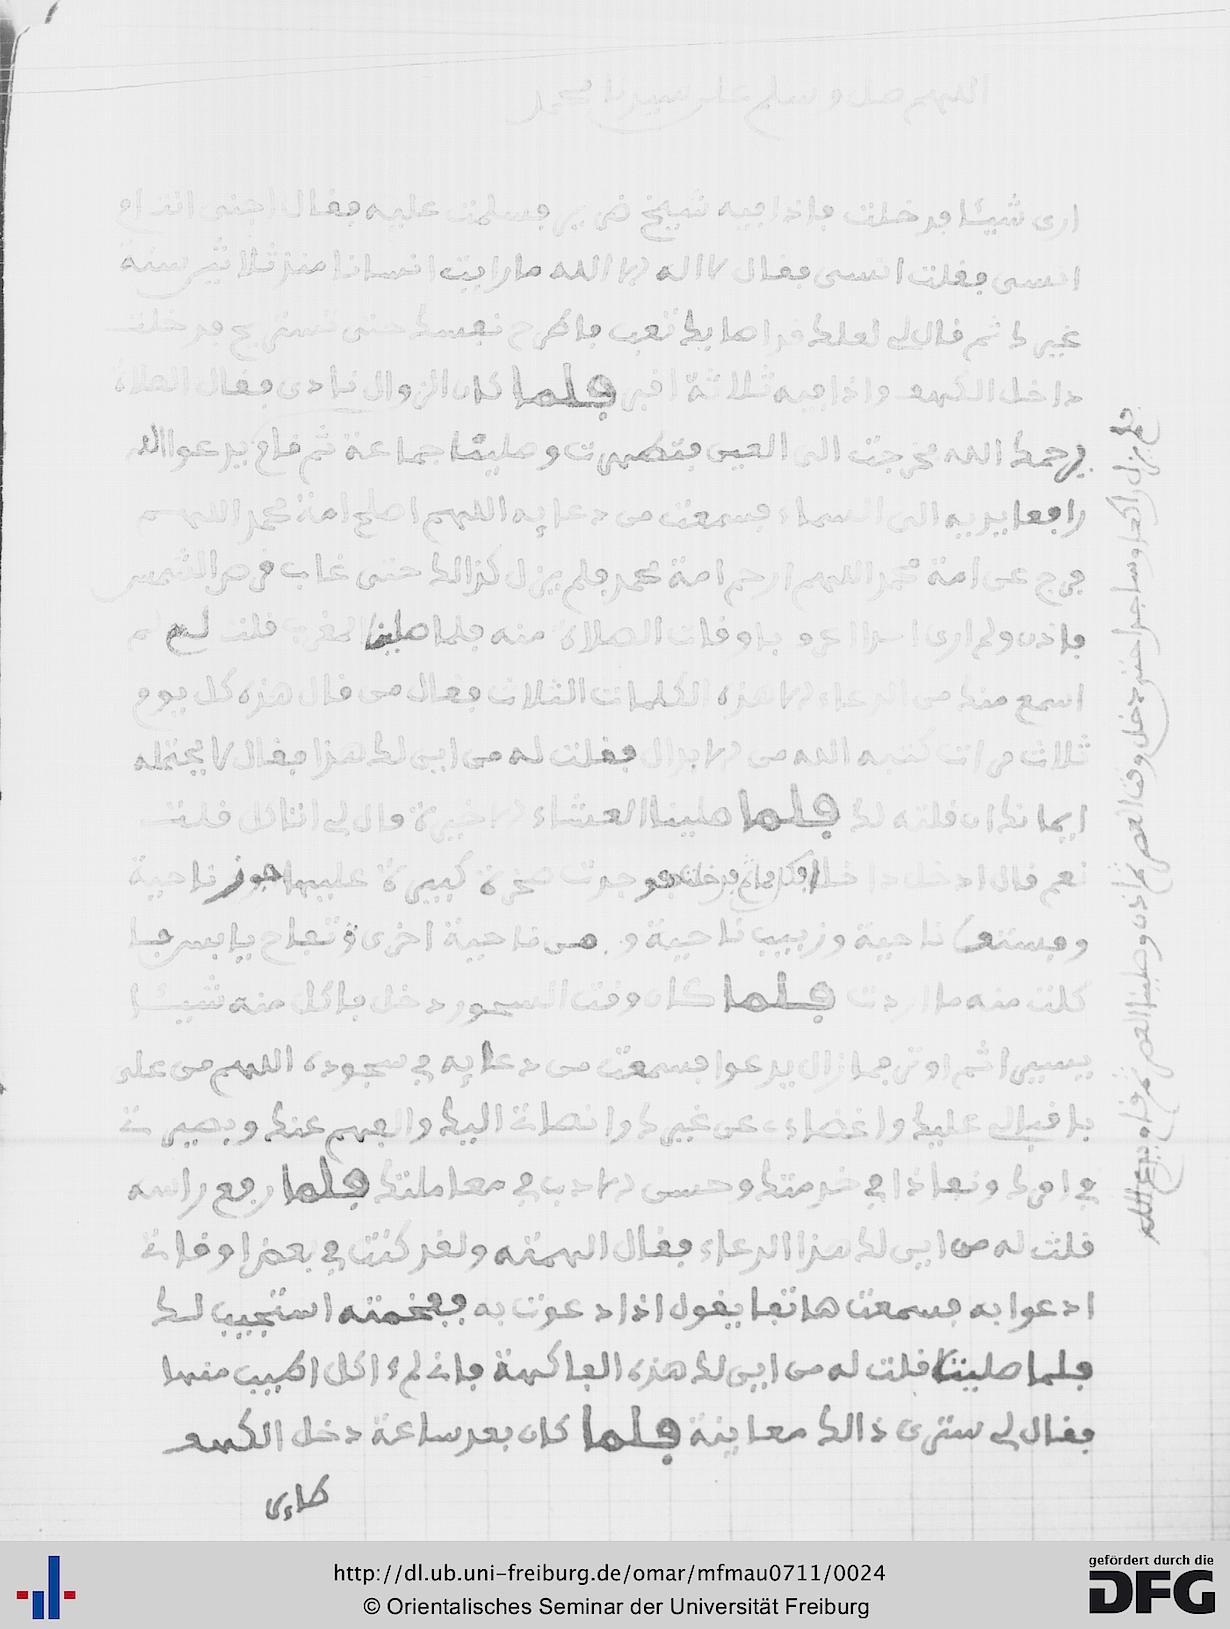 اللهم صل وسلم على سيدنا محمد
ارى شيئا فدخلت فاذا فيه شيخ ضرير فسلمت عليه فقال اجني انت ام
انسى فقلت انسى فقال لا اله الا الله ما رايت انسانا منذ ثلاثين سنة
غيرك ثم قال لى لعلك قد اصابك تعب فاطرح نفسك حتى تستريح فدخلت
داخل الكهف واذا فيه ثلاثة اقبر فلما كان الزوال نادى فقال الصلاة
يرحمك الله فخرجت الى العين فتطهرت وصلينا جماعة ثم قام يدعوا الله
رافعا يديه الى السماء فسمعت من دعايه اللهم اصلح امة محمد اللهم
فرج عن امة محمد اللهم ارحم امة محمد فلم يزل كذالك حتى غاب قرص الشمس
فاذن ولم ارى احدا اعرف باوقات الصلاة منه فلما صلينا المغرب قلت له لم
اسمع منك من الدعاء الا هذه الكلمات الثلاث فقال من قال هذه كل يوم
ثلاث مرات كتبه الله من الابدال فقلت له من اين لك هذا فقال لا يحتمله
ايمانك ان قلته لك فلما صلينا العشاء الاخيرة قال لى اتاكل قلت
نعم قال ادخل داخلا فوجدت صخرة كبيرة عليها جوز ناحية
وفستق ناحية وزبيب ناحية و من ناحية اخرى وتفاح يابس فا
كلت منه ما اردت فلما كان وقت السحور دخل فاكل منه شيئا
يسيرا ثم اوتر فما زال يدعوا فسمعت من دعايه في سجوده اللهم من على
باقبالى عليك واغضاء عن غيرك وانصات اليك والفهم عنك وبصيرت
في امرك ونفاذا في خدمتك وحسن الادب في معاملتك فلما رفع راسه
قلت له من اين لك هذا الدعاء فقال الهمته ولقد كنت في بعض اوقاتى
ادعوا به فسمعت هاتفا يقول اذا دعوت به ففخمته استجيب لك
فلما صلينا قلت له من اين لك هذه الفاكهة فانى لم اكل اطيب منها
فقال لى سترى ذالك معاينة فلما كان بعد ساعة دخل الكهف
طاير
فلم يزل راكعا وساجدا حتى دخل وقت العصر ثم اذن وصلينا العصر ثم قام ويدعوا الله